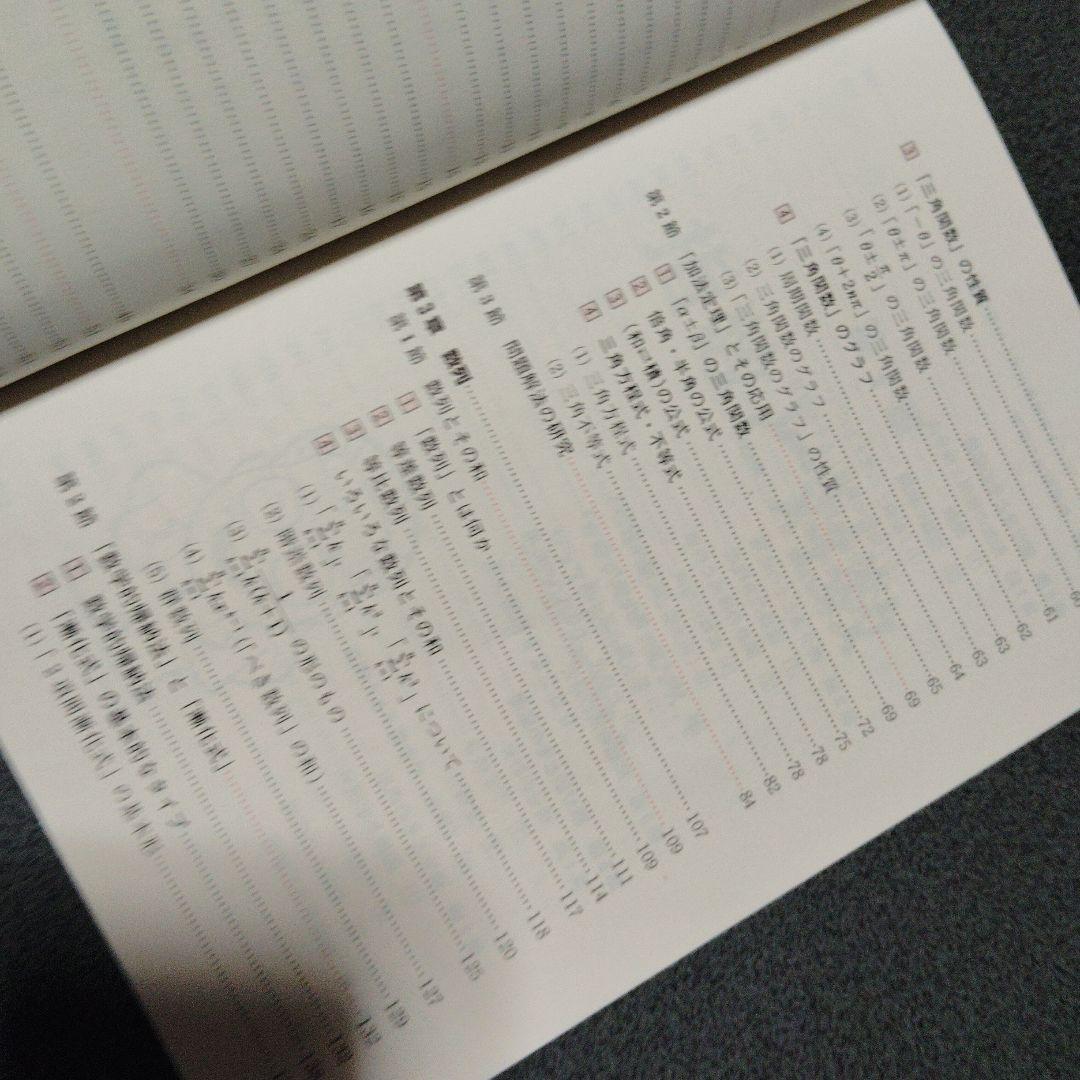 3 「三角関数」の性質
(1) 「−θ」の三角関数
(2) 「θ±π」の三角関数
(3) 「θ±π/2」の三角関数……61
(4) 「θ+2nπ」の三角関数……62
4 「三角関数」のグラフ……63
(1) 周期関数……63
(2) 三角関数のグラフ……64
(3) 「三角関数のグラフ」の性質……65
第2節 「加法定理」とその応用……69
1 「α±β」の三角関数……69
2 倍角・半角の公式……72
3 (和⇄積)の公式……75
4 三角方程式・不等式……78
(1) 三角方程式……78
(2) 三角不等式……82
第3節 問題解法の研究……84
第3章 数列……107
第1節 数列とその和……109
1 「数列」とは何か……109
2 等差数列……111
3 等比数列……114
4 いろいろな数列とその和……117
(1) について……118
(2) 階差数列……120
(3) の形のもの……125
(4) (「べき数列」の和)……127
(5) 群数列……129
第2節 「数学的帰納法」と「漸化式」……132
1 数学的帰納法
2 「漸化式」の基本的なタイプ
(1) 「2項間漸化式」の基本形